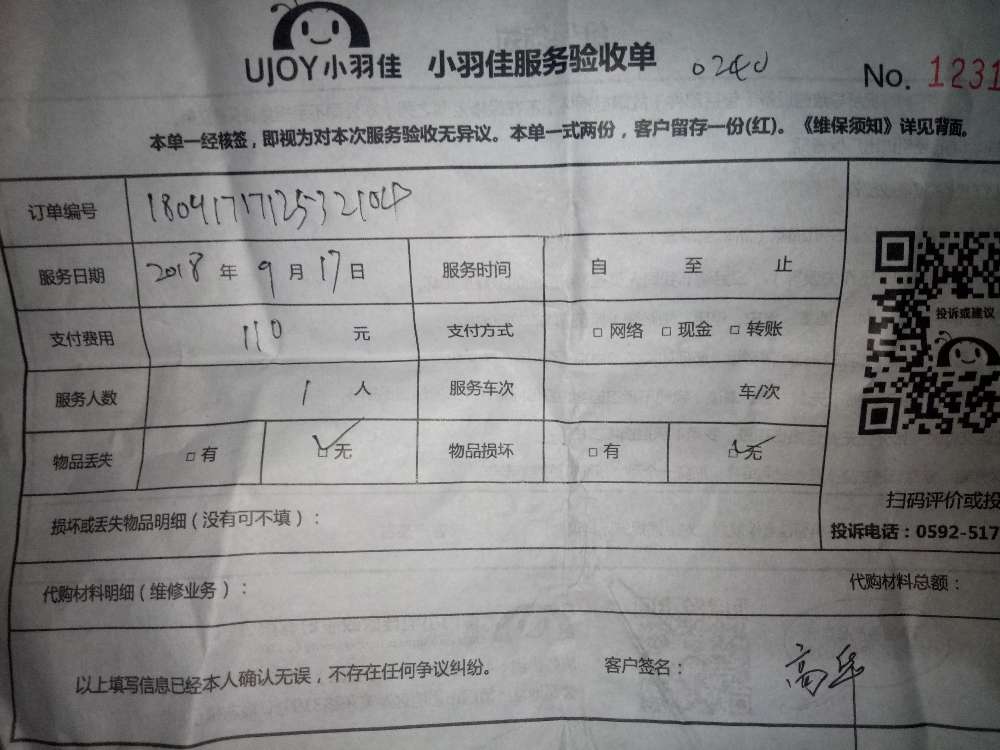 UJOY小羽佳 小羽佳服务验收单 0240 No. 1231
本单一经核签，即视为对本次服务验收无异议。本单一式两份，客户留存一份(红)。《维保须知》详见背面。
订单编号
服务日期 2018 年 9 月 17 日 服务时间 自 至 止
投诉或建议
支付费用 110 元 支付方式 □ 网络 □ 现金 □ 转账
服务人数 1 人 服务车次 车/次
物品丢失 □ 有 ☑ 无 物品损坏 □ 有 ☑ 无
扫码评价或投
损坏或丢失物品明细（没有可不填）：
投诉电话：0592-517
代购材料明细（维修业务）： 代购材料总额：
以上填写信息已经本人确认无误，不存在任何争议纠纷。 客户签名：高